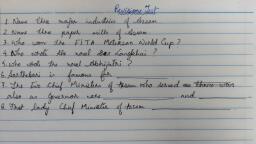 Revision Test
1. Name three major industries of Assam
2. Name three paper mills of Assam
3. Who won the FIFA World Cup ?
4. Who wrote the novel ?
5. Who wrote the novel ?
6. Sarthebari is famous for
7. The two Chief Minister of Assam who served as
also as Governor were and
8. First lady Chief Minister of Assam